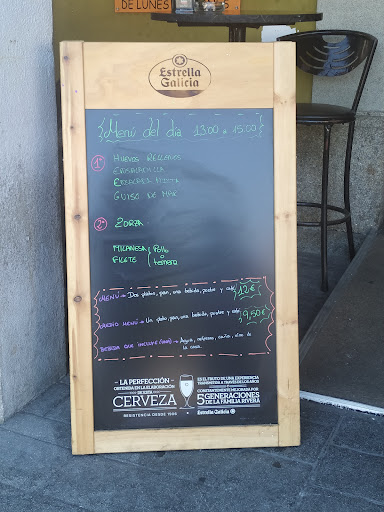 DE LUNES
Estrella
Galicia
Menú del día 13:00 a 15:00
1º HUEVOS RELLENOS
ENSALADILLA
ENSALADA MIXTA
GUISO DE MAR
2º ZORZA
MILANESA pollo
FILETE ternera
MENÚ → Dos platos, pan, una bebida, postre y café 12€
MEDIO MENÚ → Un plato, pan, una bebida, postre y café 9,50€
BEBIDA QUE INCLUYE → Agua, refresco, caña, vino de
la casa
LA PERFECCIÓN
OBTENIDA EN LA ELABORACIÓN
DE ESTA
CERVEZA
RESISTENCIA DESDE 1906
ES EL FRUTO DE UNA EXPERIENCIA
TRANSMITIDA A TRAVÉS DE LOS AÑOS
CONSTANTEMENTE MEJORADA POR
5 GENERACIONES
DE LA FAMILIA RIVERA
Estrella Galicia